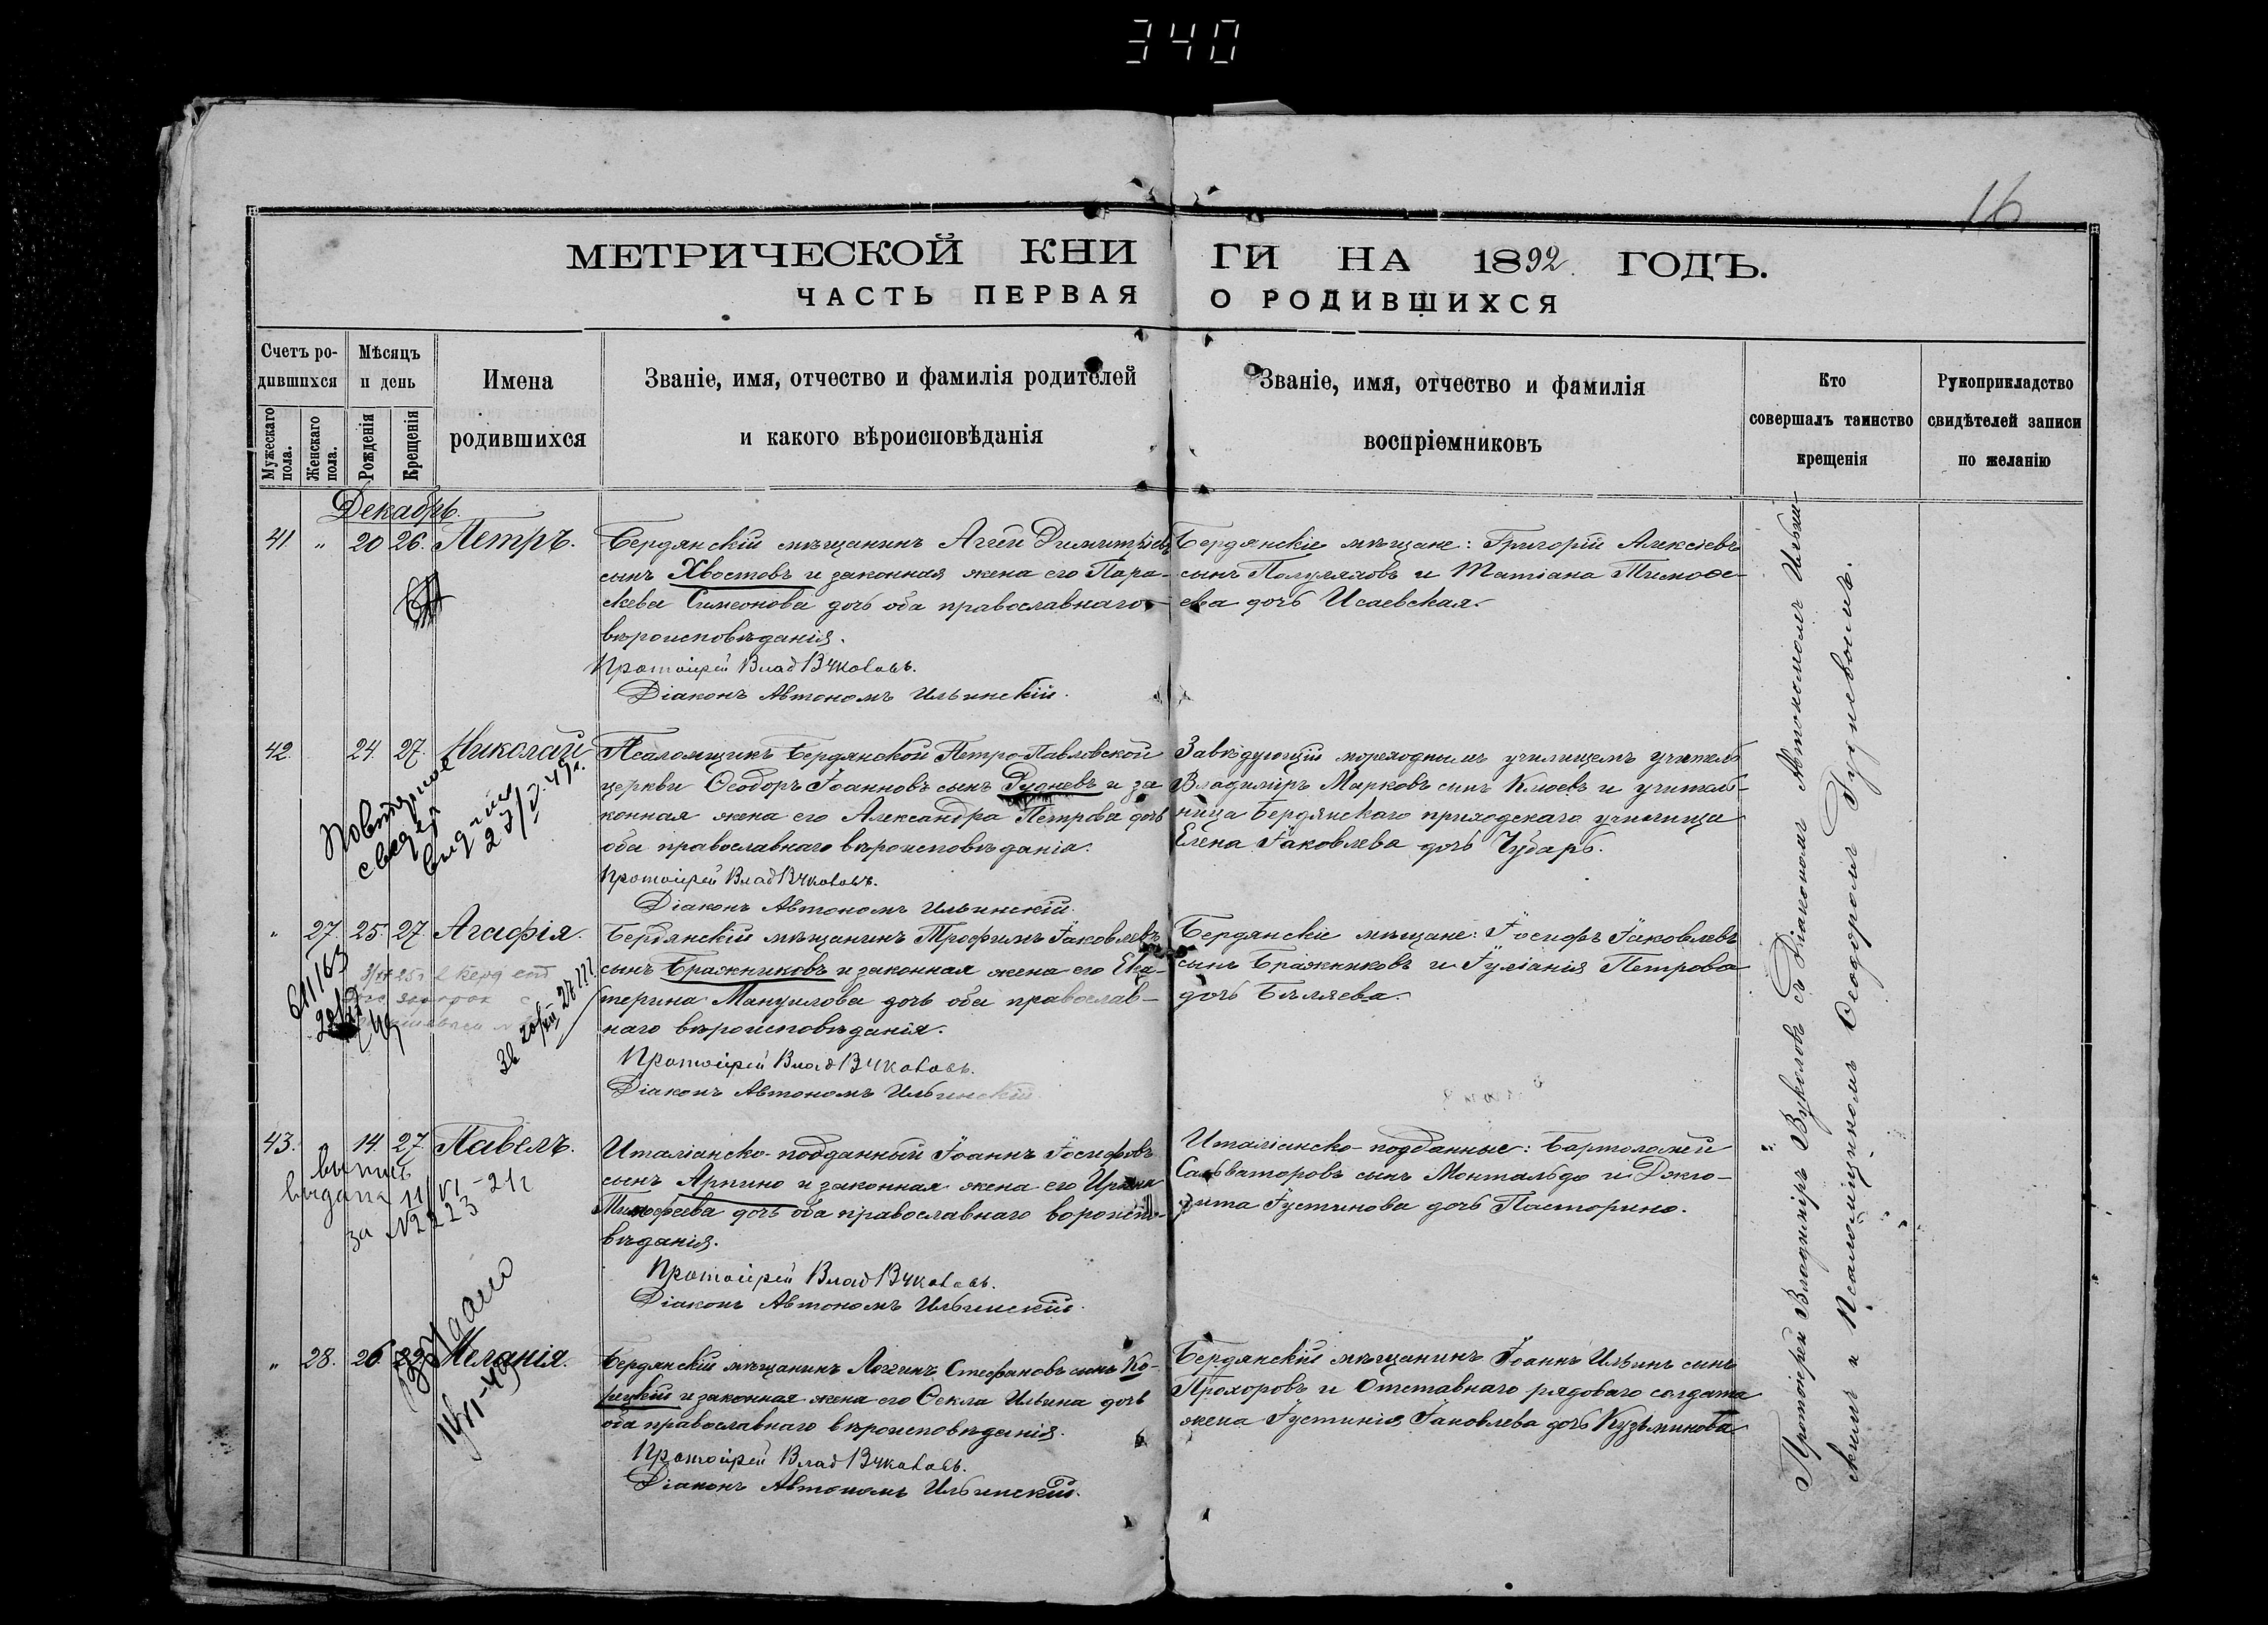 340
16
МЕТРИЧЕСКОЙ КНИГИ НА 1892 ГОДЪ.
ЧАСТЬ ПЕРВАЯ О РОДИВШИХСЯ
Счетъ ро-
дившихся
Мужескаго пола.
Женскаго пола.
Мѣсяцъ
и день
Рожденія
Крещенія
Имена
родившихся
Званіе, имя, отчество и фамилія родителей
и какого вѣроисповѣданія
Званіе, имя, отчество и фамилія
воспріемниковъ
Кто
совершалъ таинство
крещенія
Рукоприкладство
свидѣтелей записи
по желанію
Декабрь.
41. " 20 26. Петръ.
Бердянскій мѣщанинъ Аггей Димитріевъ
сынъ Хвостовъ и законная жена его Пара-
скева Симеонова дочь оба православнаго
вѣроисповѣданія.
Протоіерей Влад Вуколовъ.
Діаконъ Автономъ Ильинскій.
Бердянскіе мѣщане: Григорій Алексіевъ
сынъ Полуляховъ и Татіана Тимоѳе-
ева дочь Исаевская.
42. 24. 27. Николай
Псаломщикъ Бердянской Петро-Павловской
церкви Ѳеодоръ Іоанновъ сынъ Рудневъ и за
конная жена его Александра Петрова дочь
оба православнаго вѣроисповѣданія.
Протоіерей Влад Вуколовъ.
Діаконъ Автономъ Ильинскій.
Завѣдующій мореходнымъ училищемъ учитель
Владиміръ Марковъ сынъ Клюевъ и учитель-
ница Бердянскаго приходскаго училища
Елена Іаковлева дочь Чубарь.
Повторное
свид-
выдано
27/V-49г.
" 27. 25. 27. Агафія.
Бердянскій мѣщанинъ Трофимъ Іаковлевъ
сынъ Бражниковъ и законная жена его Ека-
терина Мануилова дочь оба православ-
наго вѣроисповѣданія.
Протоіерей Влад Вуколовъ.
Діаконъ Автономъ Ильинскій.
Бердянскіе мѣщане: Іосифъ Іаковлевъ
сынъ Бражниковъ и Іуліанія Петрова
дочь Бѣляева.
43. 14. 27. Павелъ.
Италіанско-подданный Іоаннъ Іосифовъ
сынъ Арпино и законная жена его Ирина
Тимофеева дочь оба православнаго вѣроиспо-
вѣданія.
Протоіерей Влад Вуколовъ.
Діаконъ Автономъ Ильинскій.
Италіанско-подданные: Бартоломей
Сальваторовъ сынъ Монтальдо и Джю-
дита Іустинова дочь Пасторино.
выпись
выдана 11/VI-21г
за №2223
" 28. 26. 29. Меланія.
Бердянскій мѣщанинъ Логгинъ Стефановъ сынъ Ко-
рецкій и законная жена его Ѳекла Ильина дочь
оба православнаго вѣроисповѣданія.
Протоіерей Влад Вуколовъ.
Діаконъ Автономъ Ильинскій.
Бердянскій мѣщанинъ Іоаннъ Ильинъ сынъ
Прохоровъ и Отставнаго рядоваго солдата
жена Іустинія Іаковлева дочь Кузьминова
Протоіерей Владиміръ Вуколовъ съ Діакономъ Автономомъ Ильин-
скимъ и Псаломщикомъ Ѳеодоромъ Рудневымъ.